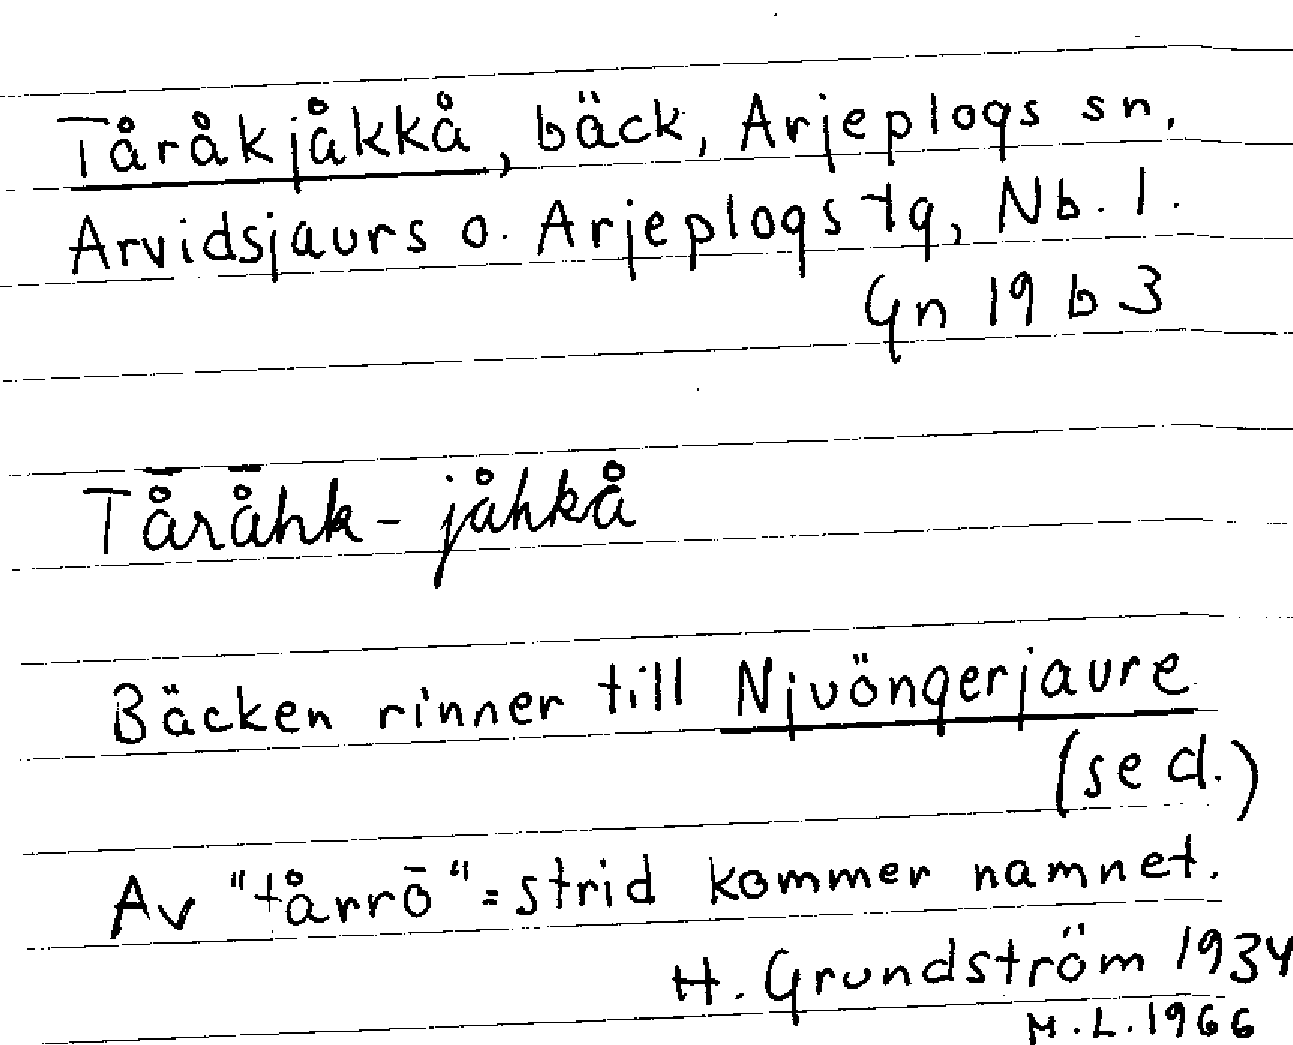 Tåråkjåkkå, bäck, Arjeplogs sn,
Arvidsjaurs o. Arjeplogs tg, Nb. l.
Gn 19 b 3
Tå̄rå̄hk - jåhkå
Bäcken rinner till Njuöngerjaure
(se d.)
Av "tårrō" = strid kommer namnet.
H. Grundström 1934
M.L. 1966